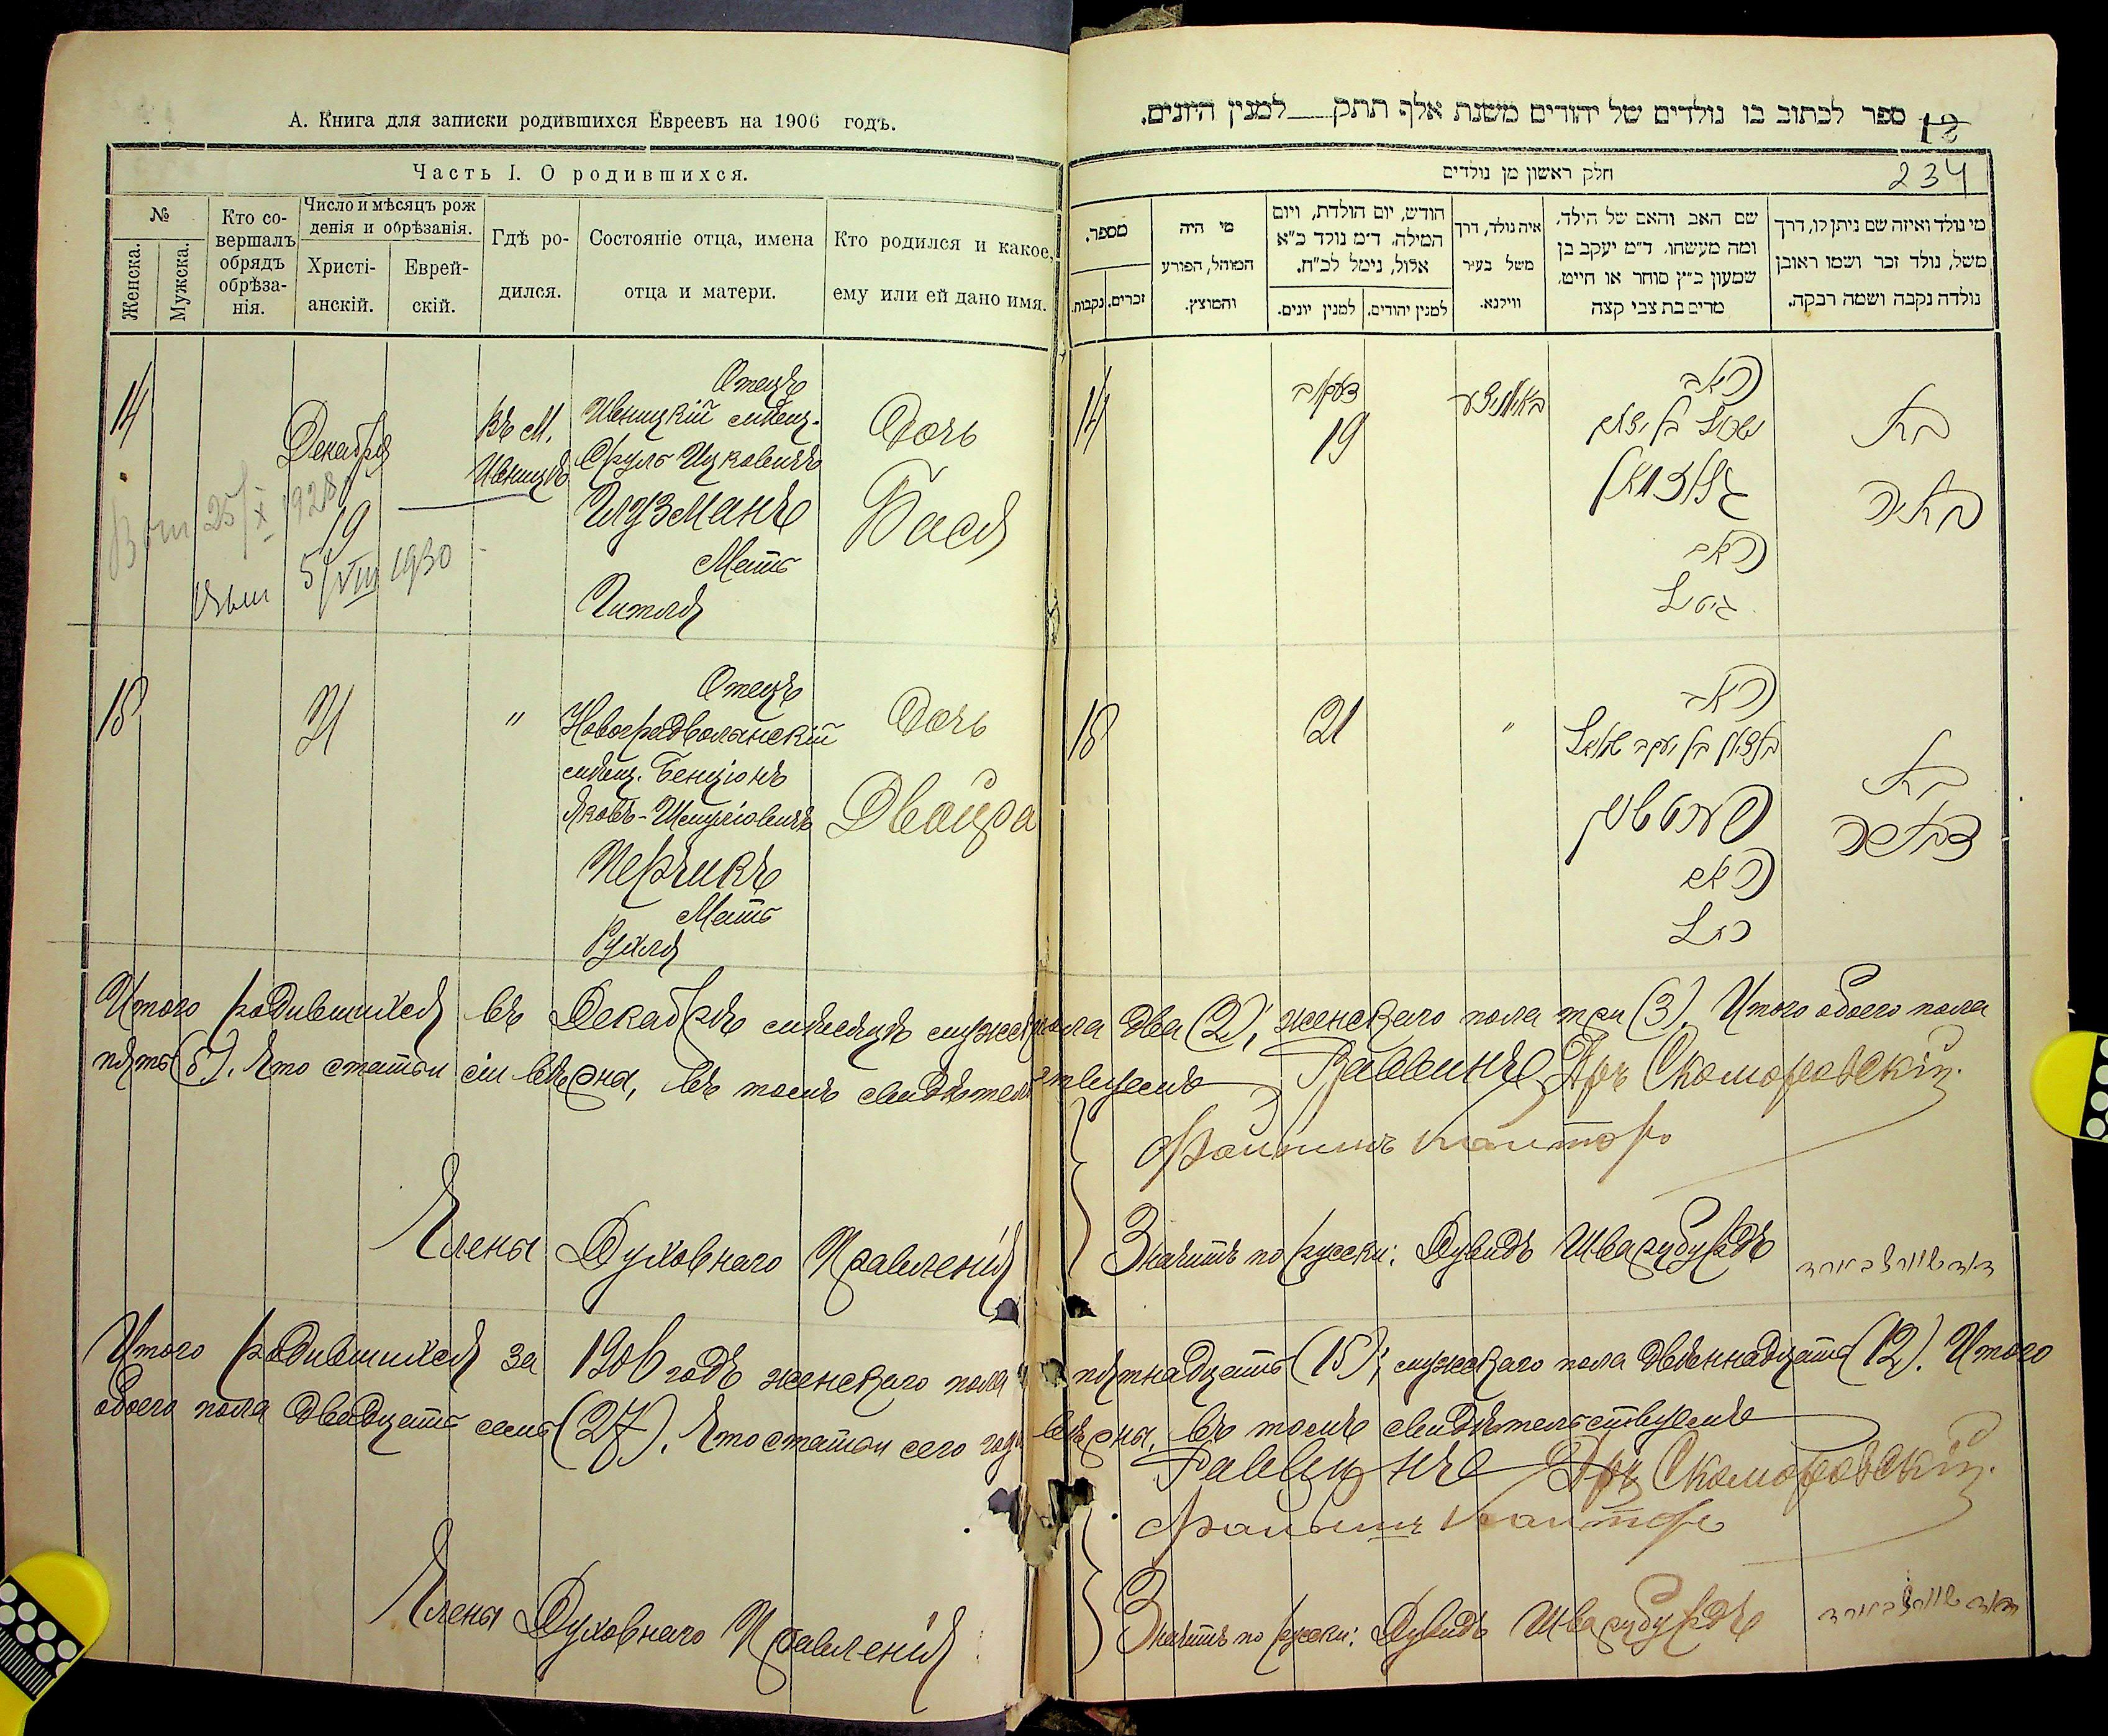 А. Книга для записки родившихся Евреевъ на 1906 годъ.
Часть I. О родившихся.
№
Женска.
Мужска.
Кто со-
вершалъ
обрядъ
обрѣза-
нія.
Число и мѣсяцъ рож
денія и обрѣзанія.
Христі-
анскій.
Еврей-
скій.
Гдѣ ро-
дился.
Состояніе отца, имена
отца и матери.
Кто родился и какое,
ему или ей дано имя.
14
Декабря
19
Въ м.
Ивницѣ
Отецъ
Ивницкій мѣщ.
Сруль Ицковичъ
Глузманъ
Мать
Гитля
Дочь
Бася
25/X 1928
5/VIII 1930
15
21
"
Отецъ
Новоградволынскій
мѣщ. Бенціонъ
Яковъ-Шмулiовичъ
Мать
Рухля
Дочь
Двойра
Итого родившихся въ Декабрѣ мѣсяцѣ мужск. пола два (2), женскаго пола три (3). Итого обоего пола
пять (5). Что статьи сіи вѣрны, въ томъ свидѣтельствуемъ
Раввинъ Др. Скоморовскій.
Канторъ
Члены Духовнаго Правленія
Значитъ по русски: Дувидъ Шварцбурдъ
Итого родившихся за 1906 годъ женскаго пола пятнадцать (15); мужскаго пола двѣннадцать (12). Итого
обоего пола двадцать семь (27). Что статьи сего года вѣрны, въ томъ свидѣтельствуемъ
Раввинъ Др. Скоморовскій.
Канторъ
Члены Духовнаго Правленія
Значитъ по русски: Дувидъ Шварцбурдъ
ספר לכתוב בו נולדים של יהודים משנת אלף תתק למנין היונים.
18
234
חלק ראשון מן נולדים
מי נולד ואיזה שם ניתן לו, דרך
משל, נולד זכר ושמו ראובן
נולדה נקבה ושמה רבקה.
שם האב והאם של הילד,
ומה מעשהו, ד״מ יעקב בן
שמעון כ״ץ סוחר או חייט,
מרים בת צבי קצה
איה נולד, דרך
משל בעיר
ווילנא.
חודש, יום הולדת, ויום
המילה, ד״מ נולד כ״א
אלול, נימל לכ״ח.
למנין יהודים.
למנין יונים.
מי היה
המוהל, הפורע
והמוצץ.
מספר.
זכרים.
נקבות.
14
19
האב
גלוזמאן
האם
גיטל
בת
באסיה
15
21
"
האב
בן ציון בן יעקב שמואל
האם
רחל
בת